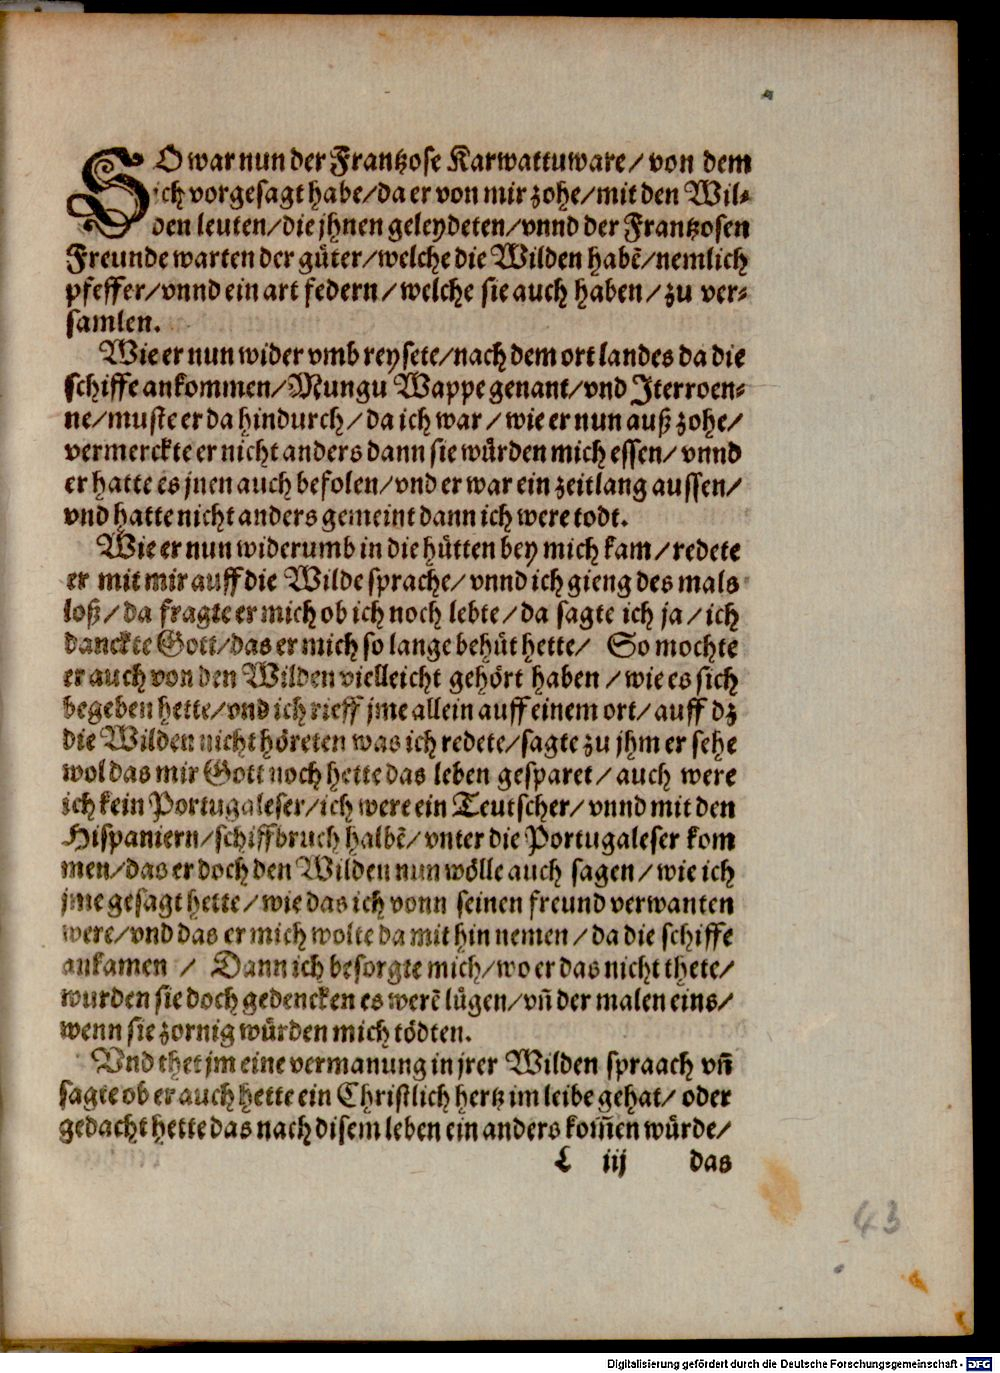 SO war nun der Frantzose Karwattuware / von dem
ich vorgesagt habe / da er von mir zohe / mit den Wil⸗
den leuten / die jhnen geleydeten / vnnd der Frantzosen
Freunde warten der güter / welche die Wilden habẽ / nemlich
pfeffer / vnnd ein art federn / welche sie auch haben / zu ver⸗
samlen.
Wie er nun wider vmb reysete / nach dem ort landes da die
schiffe ankommen / Mungu Wappe genant / vnd Jterroen⸗
ne / muste er da hindurch / da ich war / wie er nun auß zohe /
vermerckte er nicht anders dann sie würden mich essen / vnnd
er hatte es jnen auch befolen / vnd er war ein zeitlang aussen /
vnd hatte nicht anders gemeint dann ich were todt.
Wie er nun widerumb in die hütten bey mich kam / redete
er mit mir auff die Wilde sprache / vnnd ich gieng des mals
loß / da fragte er mich ob ich noch lebte / da sagte ich ja / ich
danckte Gott / das er mich so lange behüt hette / So mochte
er auch von den Wilden vielleicht gehört haben / wie es sich
begeben hette / vnd ich rieff jme allein auff einem ort / auff dz
die Wilden nicht höreten was ich redete / sagte zu jhm er sehe
wol das mir Gott noch hette das leben gesparet / auch were
ich kein Portugaleser / ich were ein Teutscher / vnnd mit den
Hispaniern / schiffbruch halbẽ / vnter die Portugaleser kom
men / das er doch den Wilden nun wölle auch sagen / wie ich
jme gesagt hette / wie das ich vonn seinen freund verwanten
were / vnd das er mich wolte da mit hin nemen / da die schiffe
ankamen / Dann ich besorgte mich / wo er das nicht thete /
wurden sie doch gedencken es werẽ lügen / vñ der malen eins /
wenn sie zornig würden mich tödten.
Vnd thet jm eine vermanung in jrer Wilden spraach vñ
sagte ob er auch hette ein Christlich hertz im leibe gehat / oder
gedacht hette das nach disem leben ein anders kom̃en würde /
L iij das
43
Digitalisierung gefördert durch die Deutsche Forschungsgemeinschaft - DFG